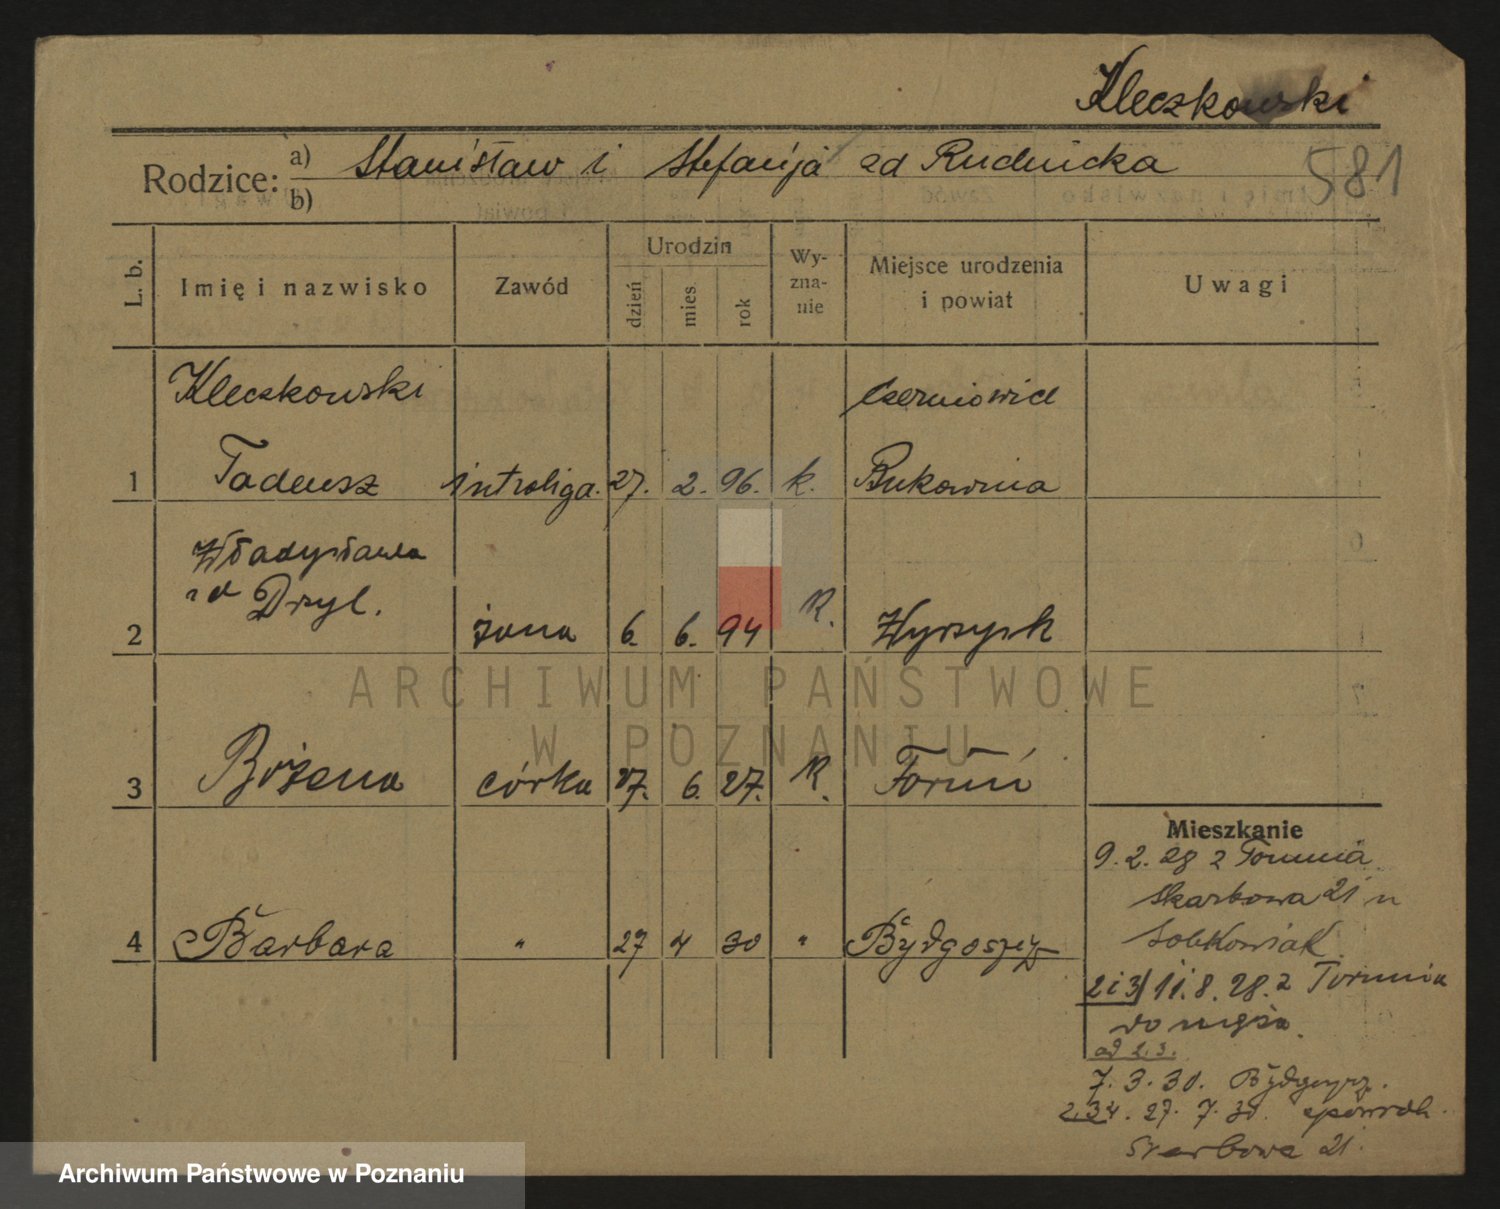 Kleczkowski
Rodzice: a) Stanisław i Stefanja zd Rudnicka
b)
581
L. b. Imię i nazwisko Zawód Urodzin dzień mies. rok Wyznanie Miejsce urodzenia i powiat Uwagi
Kleczkowski Czerniowice
1 Tadeusz introliga. 27. 2. 96. k. Bukowina
Władysława
zd Dryl.
2 żona 6. 6. 94 R. Wyrzysk
3 Bożena córka 27. 6. 27. R. Toruń
Mieszkanie
9. 2. 28 z Torunia
Skarbowa 21 u
Sobkowiak
4 Barbara " 27 4 30 " Bydgoszcz
2 i 3) 11. 8. 28. z Torunia
do męża.
ad 2. 3.
7. 3. 30. Bydgoszcz.
2.3.4. 27. 7. 30. spowrotem
Skarbowa 21.
ARCHIWUM PAŃSTWOWE
W POZNANIU
Archiwum Państwowe w Poznaniu